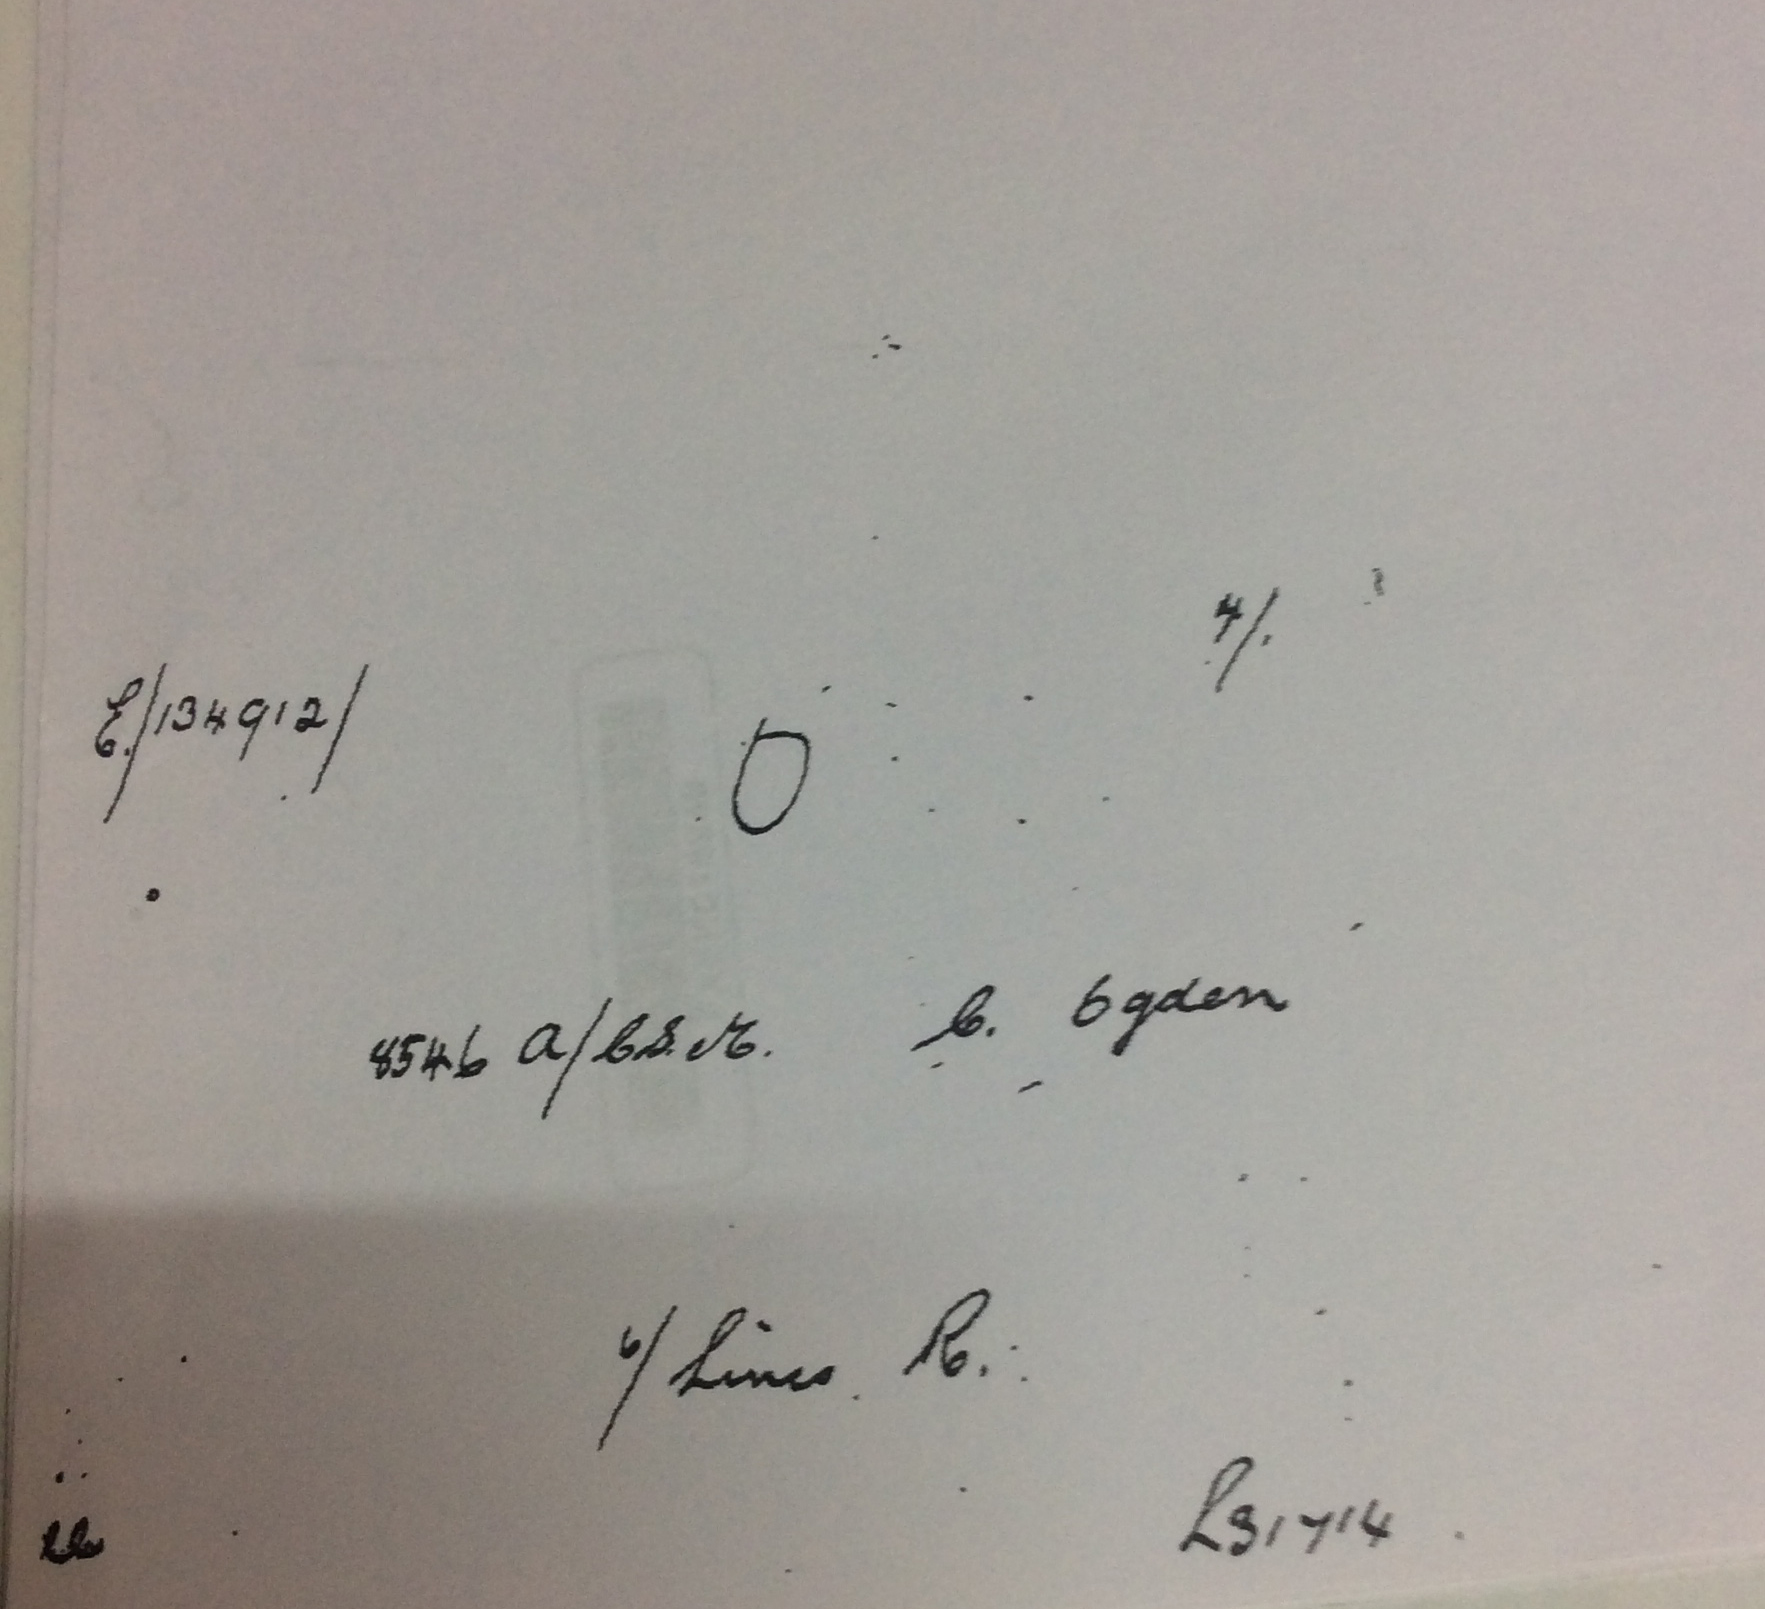 4/.
E/134912/
O
8546 A/C.S.M. C. Ogden
6/Lincs. R.
L31714